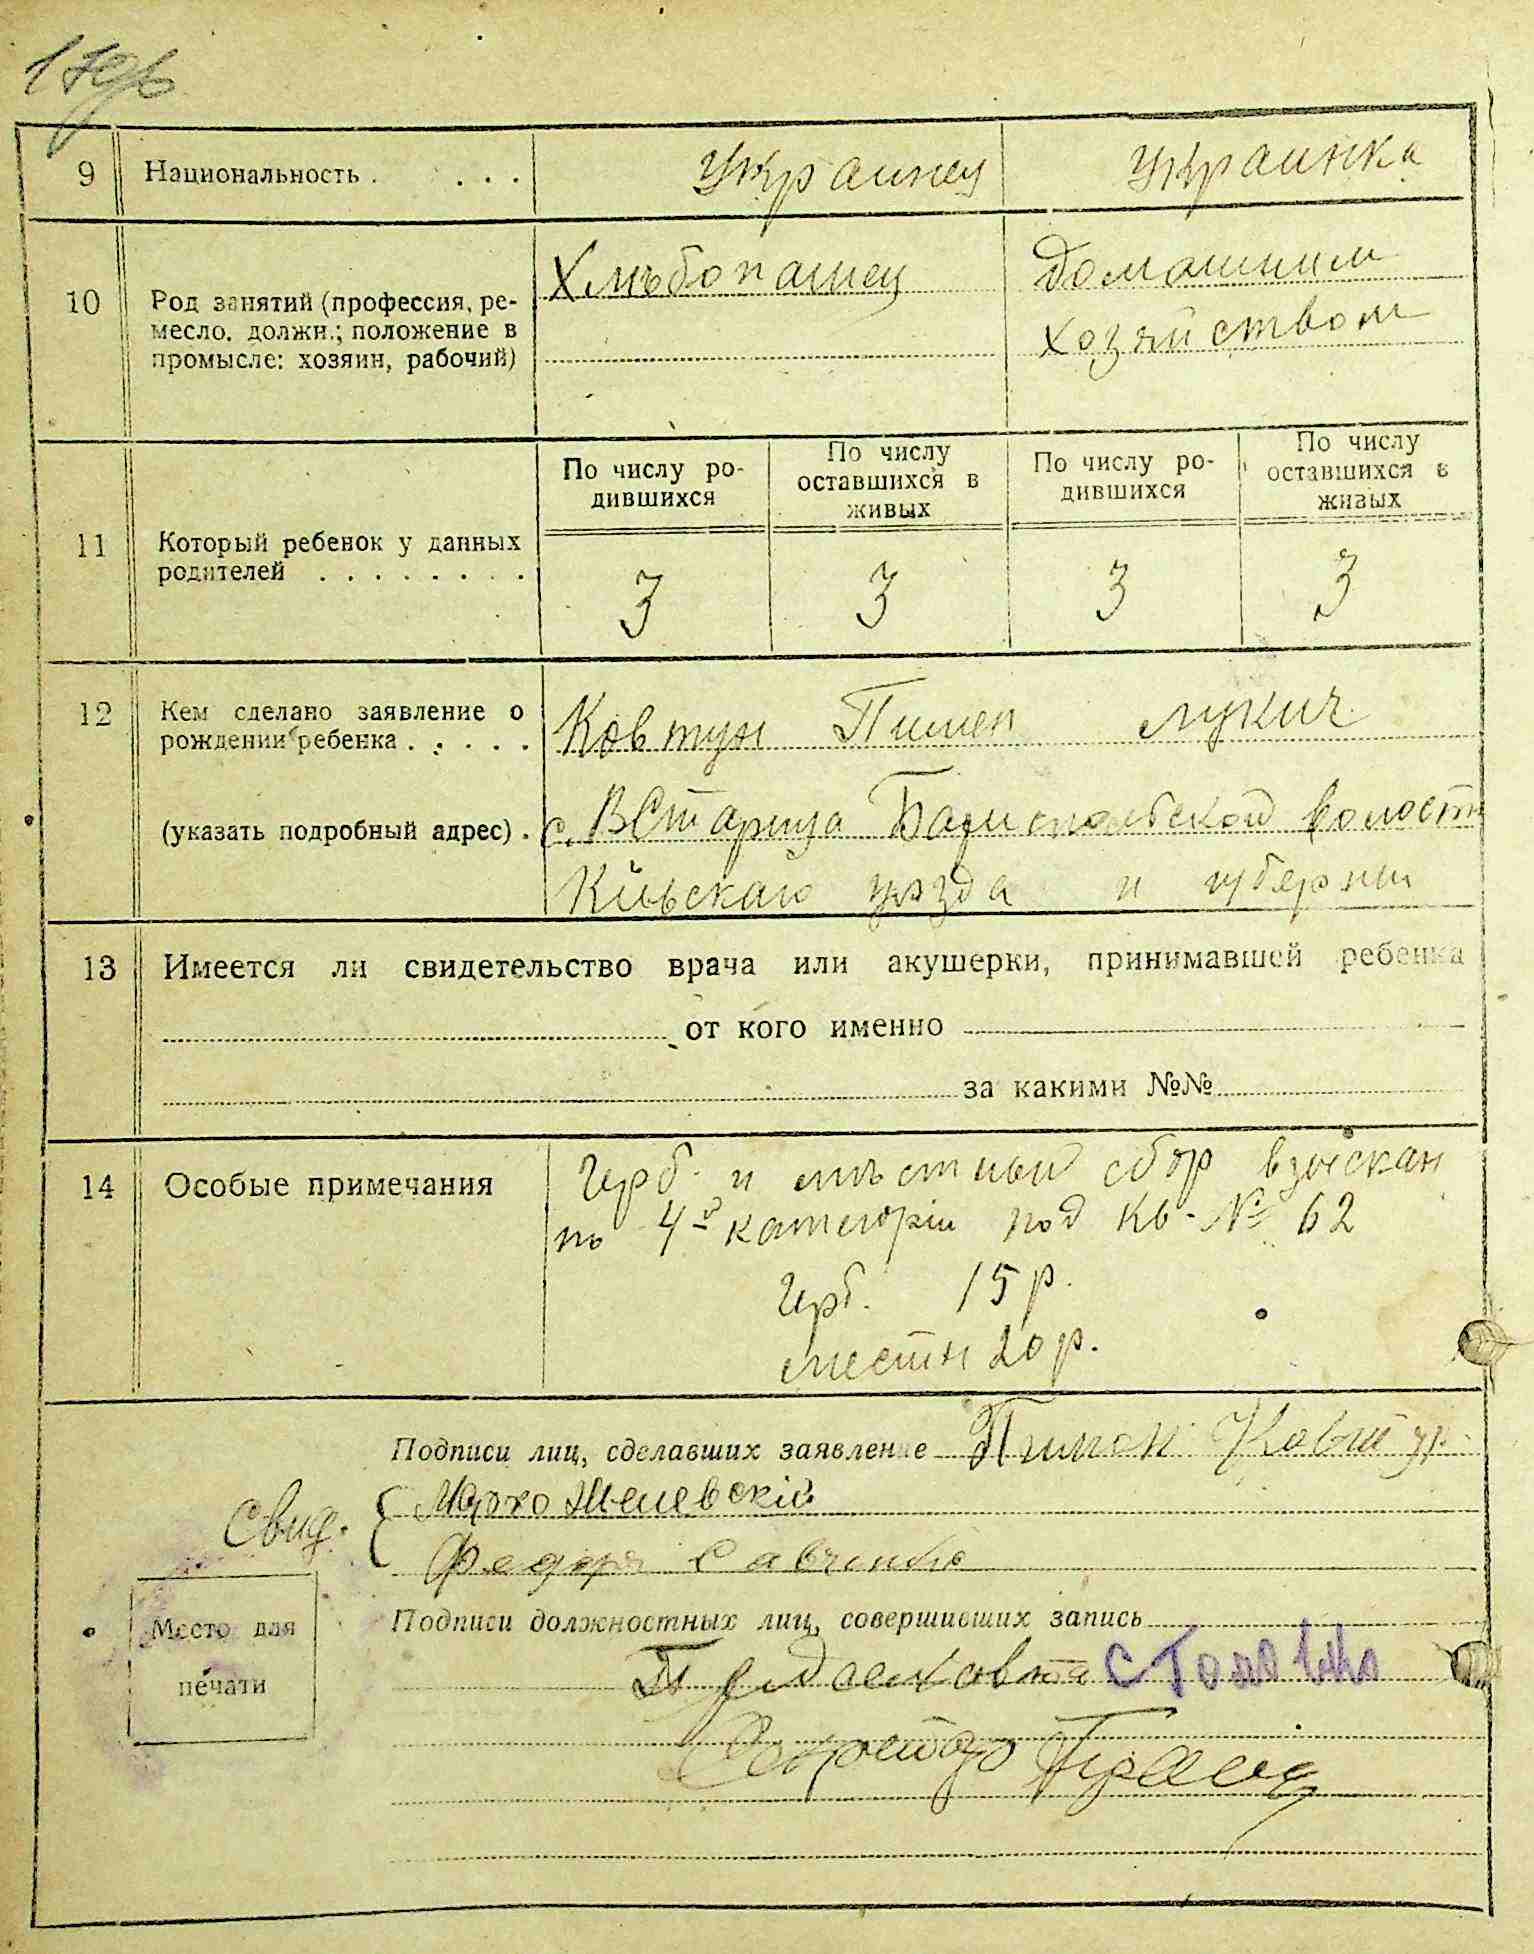 9 Национальность . . . . Украинец Украинка
10 Род занятий (профессия, ре-
месло, должн.; положение в
промысле: хозяин, рабочий)
Хлѣбопашец
Домашним
хозяйством
11 Который ребенок у данных
родителей . . . . . . . .
По числу ро-
дившихся
По числу
оставшихся в
живых
По числу ро-
дившихся
По числу
оставшихся в
живых
3 3 3 3
12 Кем сделано заявление о
рождении ребенка . . . . .
Ковтун Пимен Лукич
(указать подробный адрес) .
с. ВСтарица Бориспольской волости
Кіевскаго уезда и губернии
13 Имеется ли свидетельство врача или акушерки, принимавшей ребенка
от кого именно
за какими №№
14 Особые примечания
Герб. и мѣстный сбор взыскан
по 4й категоріи под кв. № 62
Герб. 15 р.
местн 20 р.
Подписи лиц, сделавших заявление Пимон Ковтун
Свид. Марко
Федоръ Савченко
Место для
печати
Подписи должностных лиц, совершивших запись
Секретарь